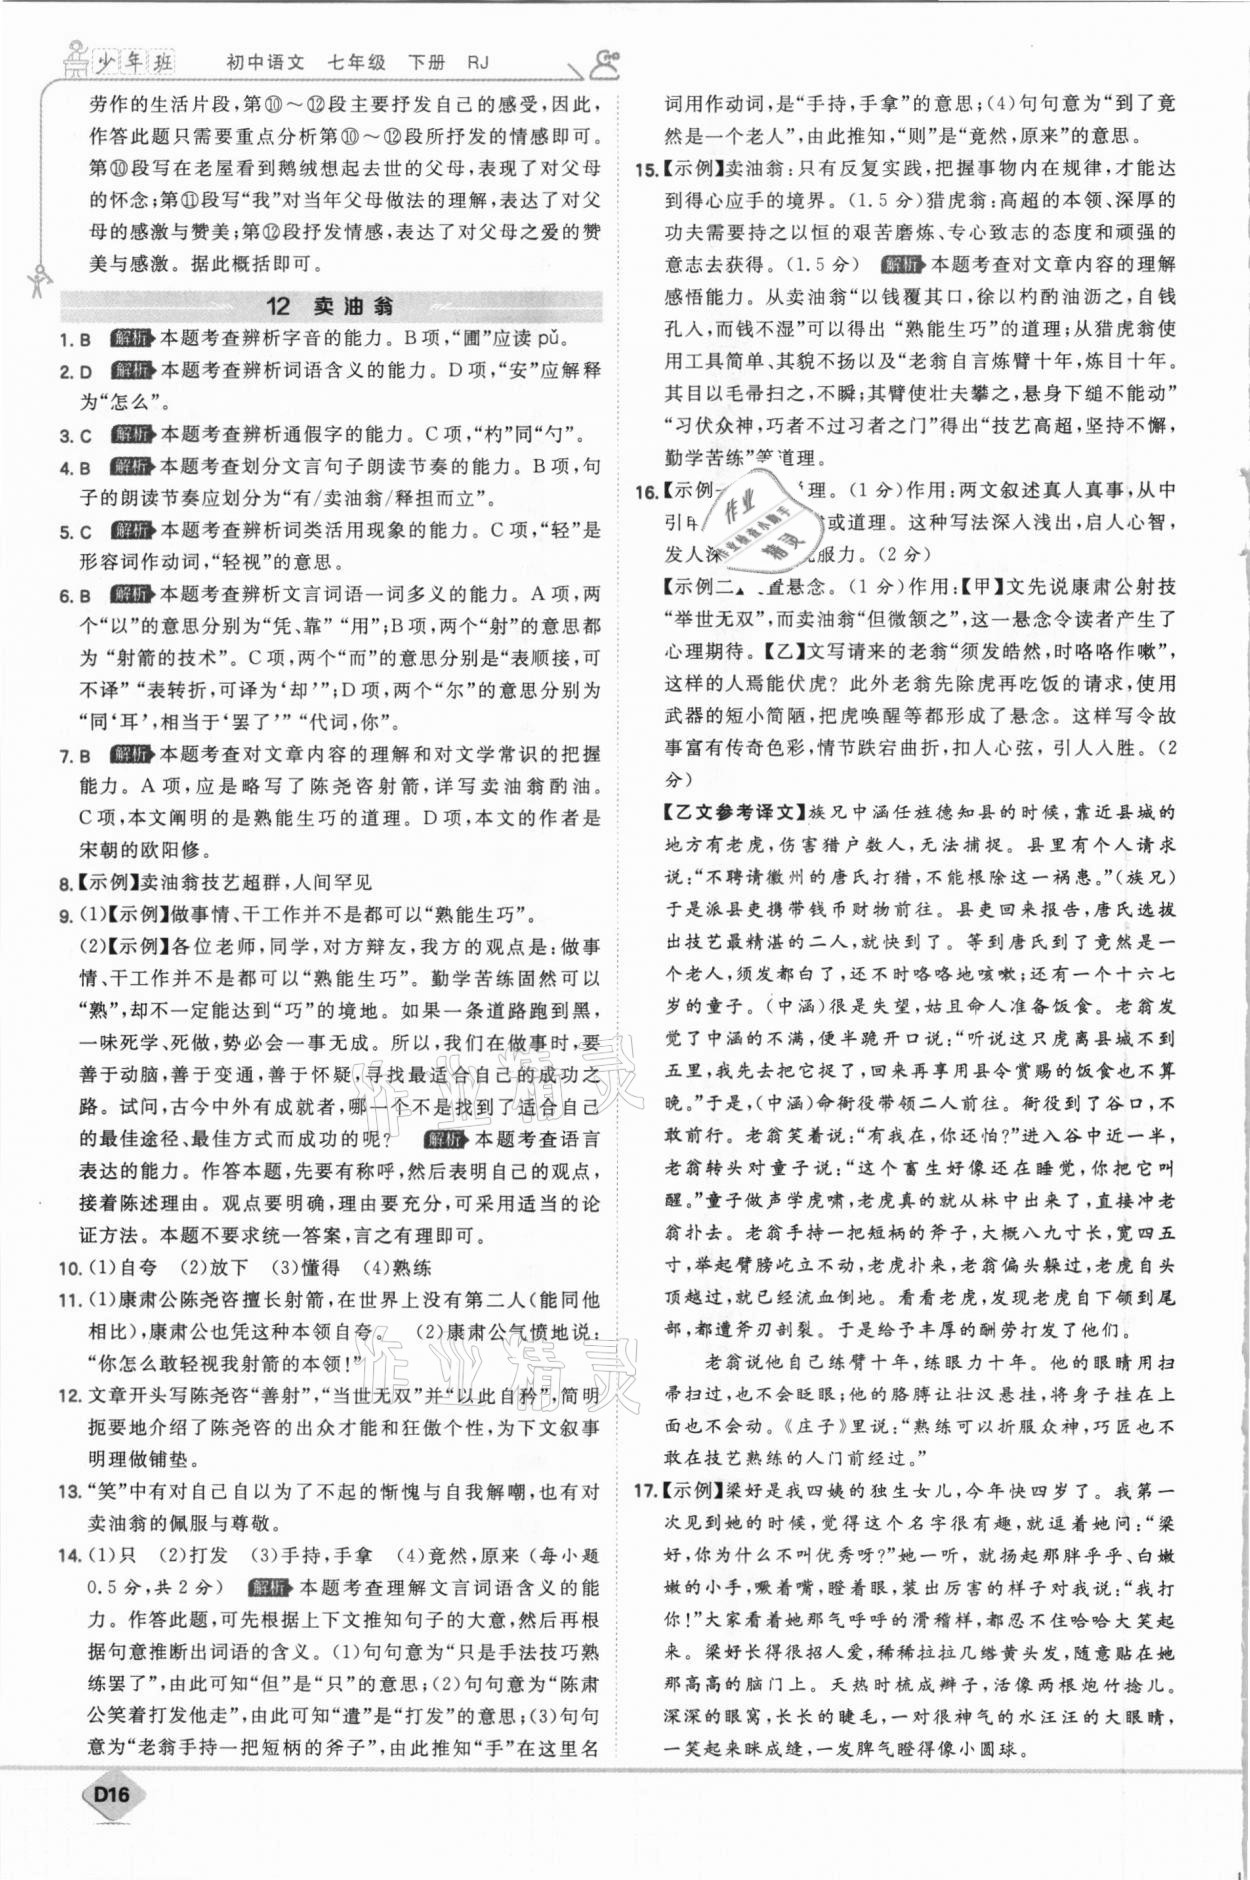 少年班 初中语文 七年级 下册 RJ
劳作的生活片段,第⑩～⑫段主要抒发自己的感受,因此,
作答此题只需要重点分析第⑩～⑫段所抒发的情感即可。
第⑩段写在老屋看到鹅绒想起去世的父母,表现了对父母
的怀念;第⑪段写“我”对当年父母做法的理解,表达了对父
母的感激与赞美;第⑫段抒发情感,表达了对父母之爱的赞
美与感激。据此概括即可。
12 卖油翁
1. B 解析 本题考查辨析字音的能力。B项,“圃”应读 pǔ。
2. D 解析 本题考查辨析词语含义的能力。D项,“安”应解释
为“怎么”。
3. C 解析 本题考查辨析通假字的能力。C项,“杓”同“勺”。
4. B 解析 本题考查划分文言句子朗读节奏的能力。B项,句
子的朗读节奏应划分为“有/卖油翁/释担而立”。
5. C 解析 本题考查辨析词类活用现象的能力。C项,“轻”是
形容词作动词,“轻视”的意思。
6. B 解析 本题考查辨析文言词语一词多义的能力。A项,两
个“以”的意思分别为“凭、靠” “用”;B项,两个“射”的意思都
为 “射箭的技术”。C项,两个“而”的意思分别是“表顺接,可
不译” “表转折,可译为‘却’”;D项,两个“尔”的意思分别为
“同‘耳’,相当于‘罢了’” “代词,你”。
7. B 解析 本题考查对文章内容的理解和对文学常识的把握
能力。A项,应是略写了陈尧咨射箭,详写卖油翁酌油。
C项,本文阐明的是熟能生巧的道理。D项,本文的作者是
宋朝的欧阳修。
8.【示例】卖油翁技艺超群,人间罕见
9. (1)【示例】做事情、干工作并不是都可以“熟能生巧”。
(2)【示例】各位老师,同学,对方辩友,我方的观点是:做事
情、干工作并不是都可以“熟能生巧”。勤学苦练固然可以
“熟”,却不一定能达到“巧”的境地。如果一条道路跑到黑,
一味死学、死做,势必会一事无成。所以,我们在做事时,要
善于动脑,善于变通,善于怀疑,寻找最适合自己的成功之
路。试问,古今中外有成就者,哪一个不是找到了适合自己
的最佳途径、最佳方式而成功的呢? 解析 本题考查语言
表达的能力。作答本题,先要有称呼,然后表明自己的观点,
接着陈述理由。观点要明确,理由要充分,可采用适当的论
证方法。本题不要求统一答案,言之有理即可。
10. (1)自夸 (2)放下 (3)懂得 (4)熟练
11. (1)康肃公陈尧咨擅长射箭,在世界上没有第二人(能同他
相比),康肃公也凭这种本领自夸。 (2)康肃公气愤地说:
“你怎么敢轻视我射箭的本领!”
12. 文章开头写陈尧咨“善射”,“当世无双”并“以此自矜”,简明
扼要地介绍了陈尧咨的出众才能和狂傲个性,为下文叙事
明理做铺垫。
13. “笑”中有对自己自以为了不起的惭愧与自我解嘲,也有对
卖油翁的佩服与尊敬。
14. (1)只 (2)打发 (3)手持,手拿 (4)竟然,原来(每小题
0.5分,共2分) 解析 本题考查理解文言词语含义的能
力。作答此题,可先根据上下文推知句子的大意,然后再根
据句意推断出词语的含义。(1)句句意为“只是手法技巧熟
练罢了”,由此可知“但”是“只”的意思;(2)句句意为“陈肃
公笑着打发他走”,由此可知“遣”是“打发”的意思;(3)句句
意为“老翁手持一把短柄的斧子”,由此推知“手”在这里名
词用作动词,是“手持,手拿”的意思;(4)句句意为“到了竟
然是一个老人”,由此推知,“则”是“竟然,原来”的意思。
15.【示例】卖油翁:只有反复实践,把握事物内在规律,才能达
到得心应手的境界。(1.5分)猎虎翁:高超的本领、深厚的
功夫需要持之以恒的艰苦磨炼、专心致志的态度和顽强的
意志去获得。(1.5分) 解析 本题考查对文章内容的理解
感悟能力。从卖油翁“以钱覆其口,徐以杓酌油沥之,自钱
孔入,而钱不湿”可以得出 “熟能生巧”的道理;从猎虎翁使
用工具简单、其貌不扬以及“老翁自言炼臂十年,炼目十年。
其目以毛帚扫之,不瞬;其臂使壮夫攀之,悬身下缒不能动”
“习伏众神,巧者不过习者之门”得出“技艺高超,坚持不懈,
勤学苦练”等道理。
16.【示例一 理。(1分)作用:两文叙述真人真事,从中
引 或道理。这种写法深入浅出,启人心智,
发人深 服力。(2分)
【示例二 置悬念。(1分)作用:【甲】文先说康肃公射技
“举世无双”,而卖油翁“但微颔之”,这一悬念令读者产生了
心理期待。【乙】文写请来的老翁“须发皓然,时咯咯作嗽”,
这样的人焉能伏虎? 此外老翁先除虎再吃饭的请求,使用
武器的短小简陋,把虎唤醒等都形成了悬念。这样写令故
事富有传奇色彩,情节跌宕曲折,扣人心弦,引人入胜。(2
分)
【乙文参考译文】族兄中涵任旌德知县的时候,靠近县城的
地方有老虎,伤害猎户数人,无法捕捉。县里有个人请求
说:“不聘请徽州的唐氏打猎,不能根除这一祸患。”(族兄)
于是派县吏携带钱币财物前往。县吏回来报告,唐氏选拔
出技艺最精湛的二人,就快到了。等到唐氏到了竟然是一
个老人,须发都白了,还不时咯咯地咳嗽;还有一个十六七
岁的童子。(中涵)很是失望,姑且命人准备饭食。老翁发
觉了中涵的不满,便半跪开口说:“听说这只虎离县城不到
五里,我先去把它捉来,回来再享用县令赏赐的饭食也不算
晚。”于是,(中涵)命衙役带领二人前往。衙役到了谷口,不
敢前行。老翁笑着说:“有我在,你还怕?”进入谷中近一半,
老翁转头对童子说:“这个畜生好像还在睡觉,你把它叫
醒。”童子做声学虎啸,老虎真的就从林中出来了,直接冲老
翁扑去。老翁手持一把短柄的斧子,大概八九寸长,宽四五
寸,举起臂膀屹立不动,老虎扑来,老翁偏头躲过,老虎自头
顶越过,就已经流血倒地。看看老虎,发现老虎自下颌到尾
部,都遭斧刃剖裂。于是给予丰厚的酬劳打发了他们。
老翁说他自己练臂十年,练眼力十年。他的眼睛用扫
帚扫过,也不会眨眼;他的胳膊让壮汉悬挂,将身子挂在上
面也不会动。《庄子》里说:“熟练可以折服众神,巧匠也不
敢在技艺熟练的人门前经过。”
17.【示例】梁好是我四姨的独生女儿,今年快四岁了。我第一
次见到她的时候,觉得这个名字很有趣,就逗着她问:“梁
好,你为什么不叫优秀呀?”她一听,就挥起那胖乎乎、白嫩
嫩的小手,噘着嘴,瞪着眼,装出厉害的样子对我说:“我打
你!”大家看着她那气呼呼的滑稽样,都忍不住哈哈大笑起
来。梁好长得很招人爱,稀稀拉拉几绺黄头发,随意贴在她
那高高的脑门上。天热时梳成辫子,活像两根炮竹捻儿。
深深的眼窝,长长的睫毛,一对很神气的水汪汪的大眼睛,
一笑起来眯成缝,一发脾气瞪得像小圆球。
作业
作业检查小助手
精灵
作业精灵
作业精灵
D16